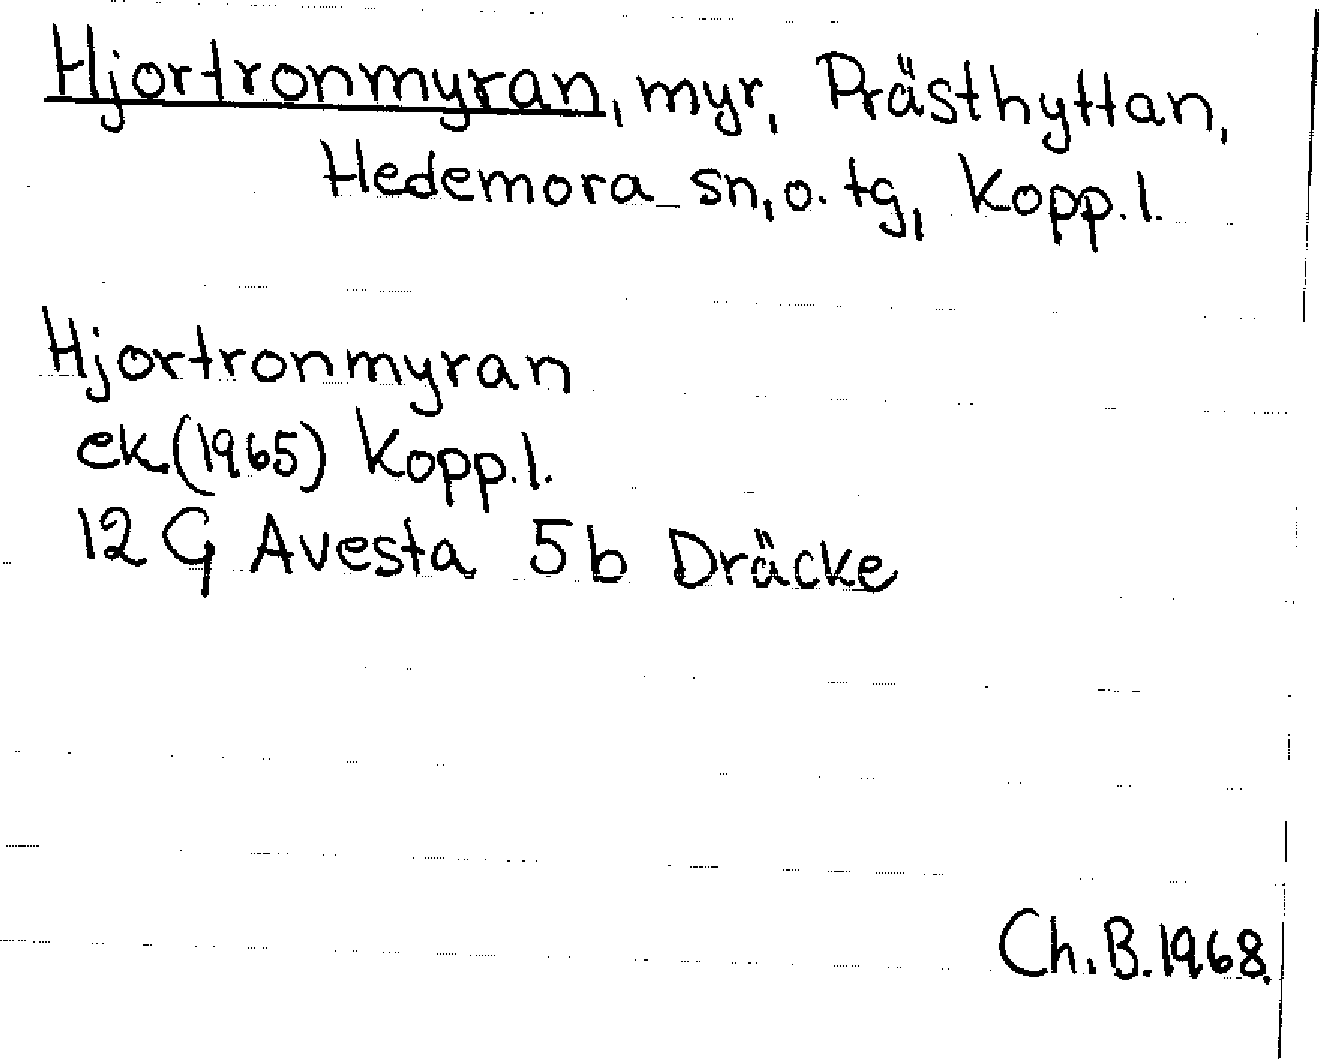 Hjortronmyran, myr, Prästhyttan,
Hedemora sn, o. tg, Kopp. l.
Hjortronmyran
ek (1965) Kopp. l.
12 G Avesta 5b Dräcke
Ch. B. 1968.